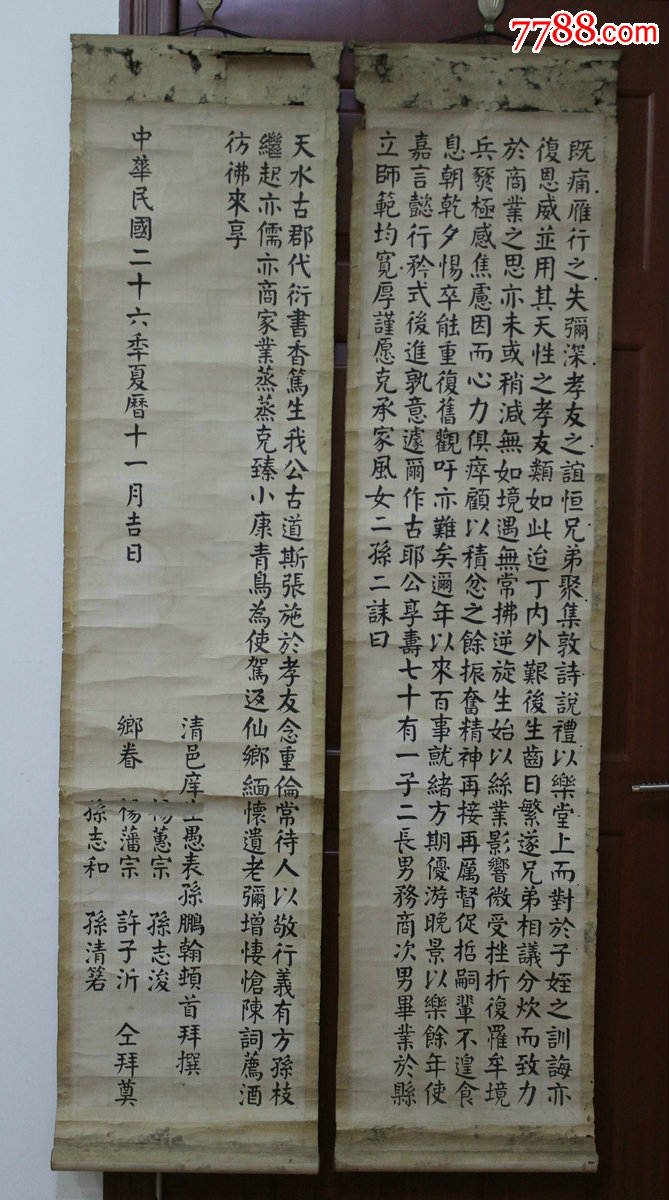 7788.com
既痛雁行之失彌深孝友之誼恒兄弟聚集敦詩說禮以樂堂上而對於子姪之訓誨亦
復恩威並用其天性之孝友類如此迨丁內外艱後生齒日繁遂兄弟相議分炊而致力
於商業之思亦未或稍減無如境遇無常拂逆旋生始以絲業影響微受挫折復罹牟境
兵燹極感焦慮因而心力俱瘁顧以積忿之餘振奮精神再接再厲督促哲嗣輩不遑食
息朝乾夕惕卒能重復舊觀吁亦難矣邇年以來百事就緒方期優游晚景以樂餘年使
嘉言懿行矜式後進孰意遽爾作古耶公享壽七十有一子二長男務商次男畢業於縣
立師範均寬厚謹愿克承家風女二孫二誄曰
天水古郡代衍書香篤生我公古道斯張施於孝友念重倫常待人以敬行義有方孫枝
繼起亦儒亦商家業蒸蒸克臻小康青鳥為使駕返仙鄉緬懷遺老彌增悽愴陳詞薦酒
彷彿來享
清邑庠生愚表孫鵬翰頓首拜撰
楊蕙宗 孫志浚
鄉眷 楊藩宗 許子沂 仝拜奠
孫志和 孫清箬
中華民國二十六秊夏曆十一月吉日